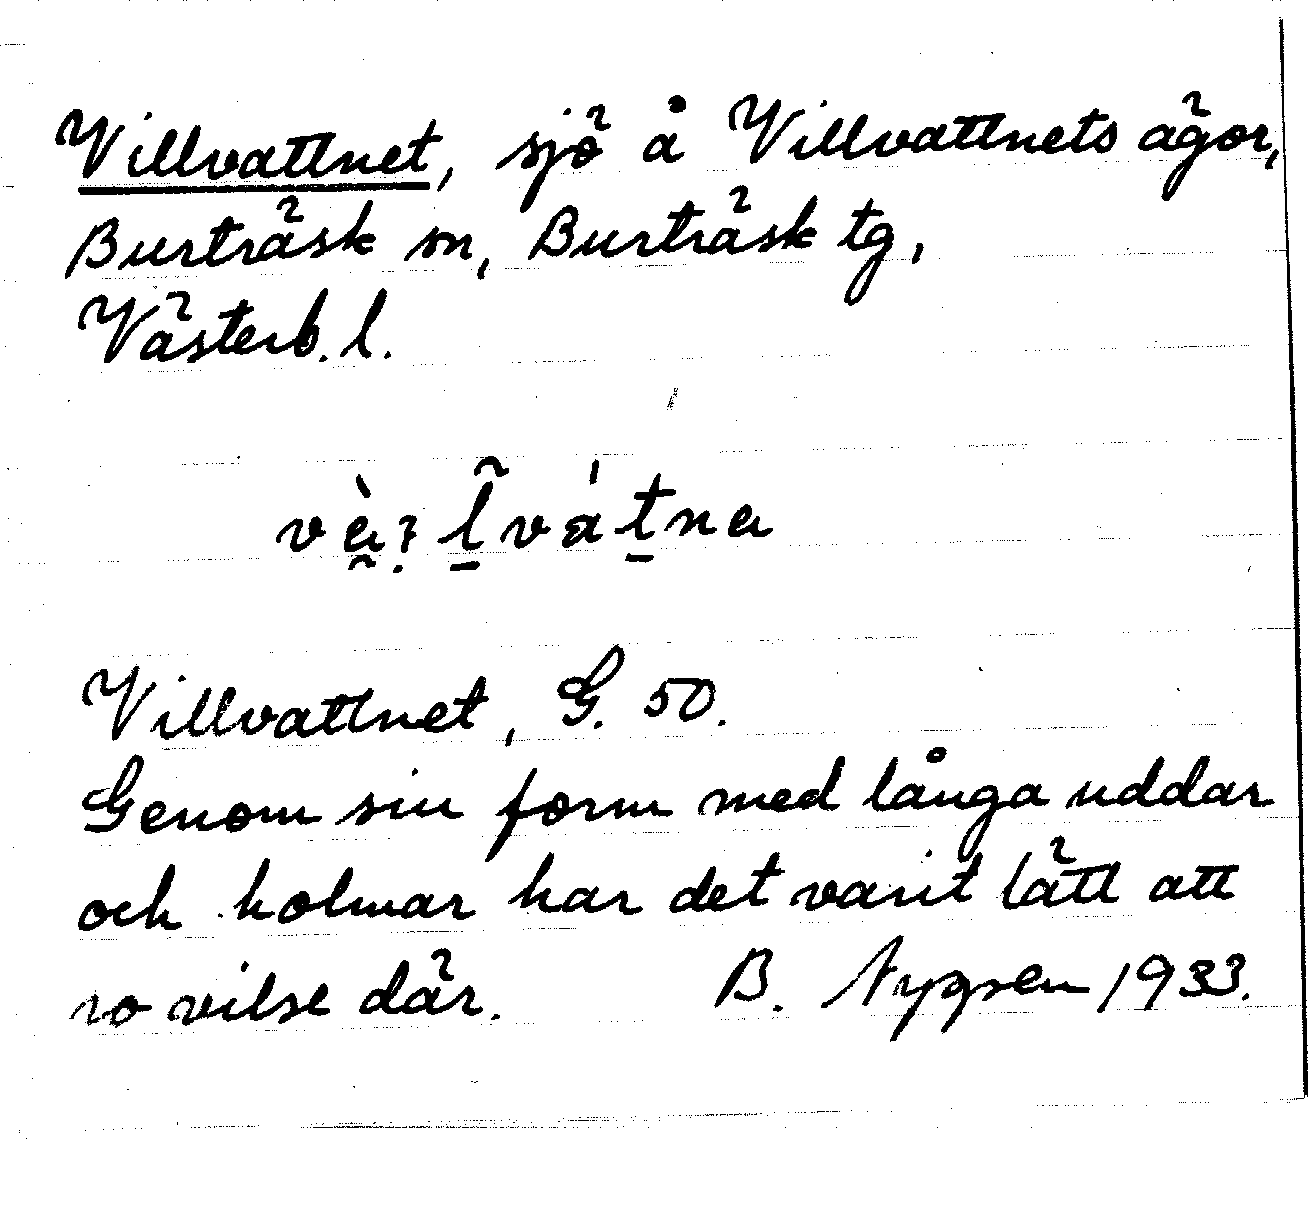 Villvattnet, sjö å Villvattnets ägor,
Burträsk sn, Burträsk tg,
Västerb. l.
Villvattnet, G. 50.
Genom sin form med långa uddar
och holmar har det varit lätt att
ro vilse där. B. 1933.